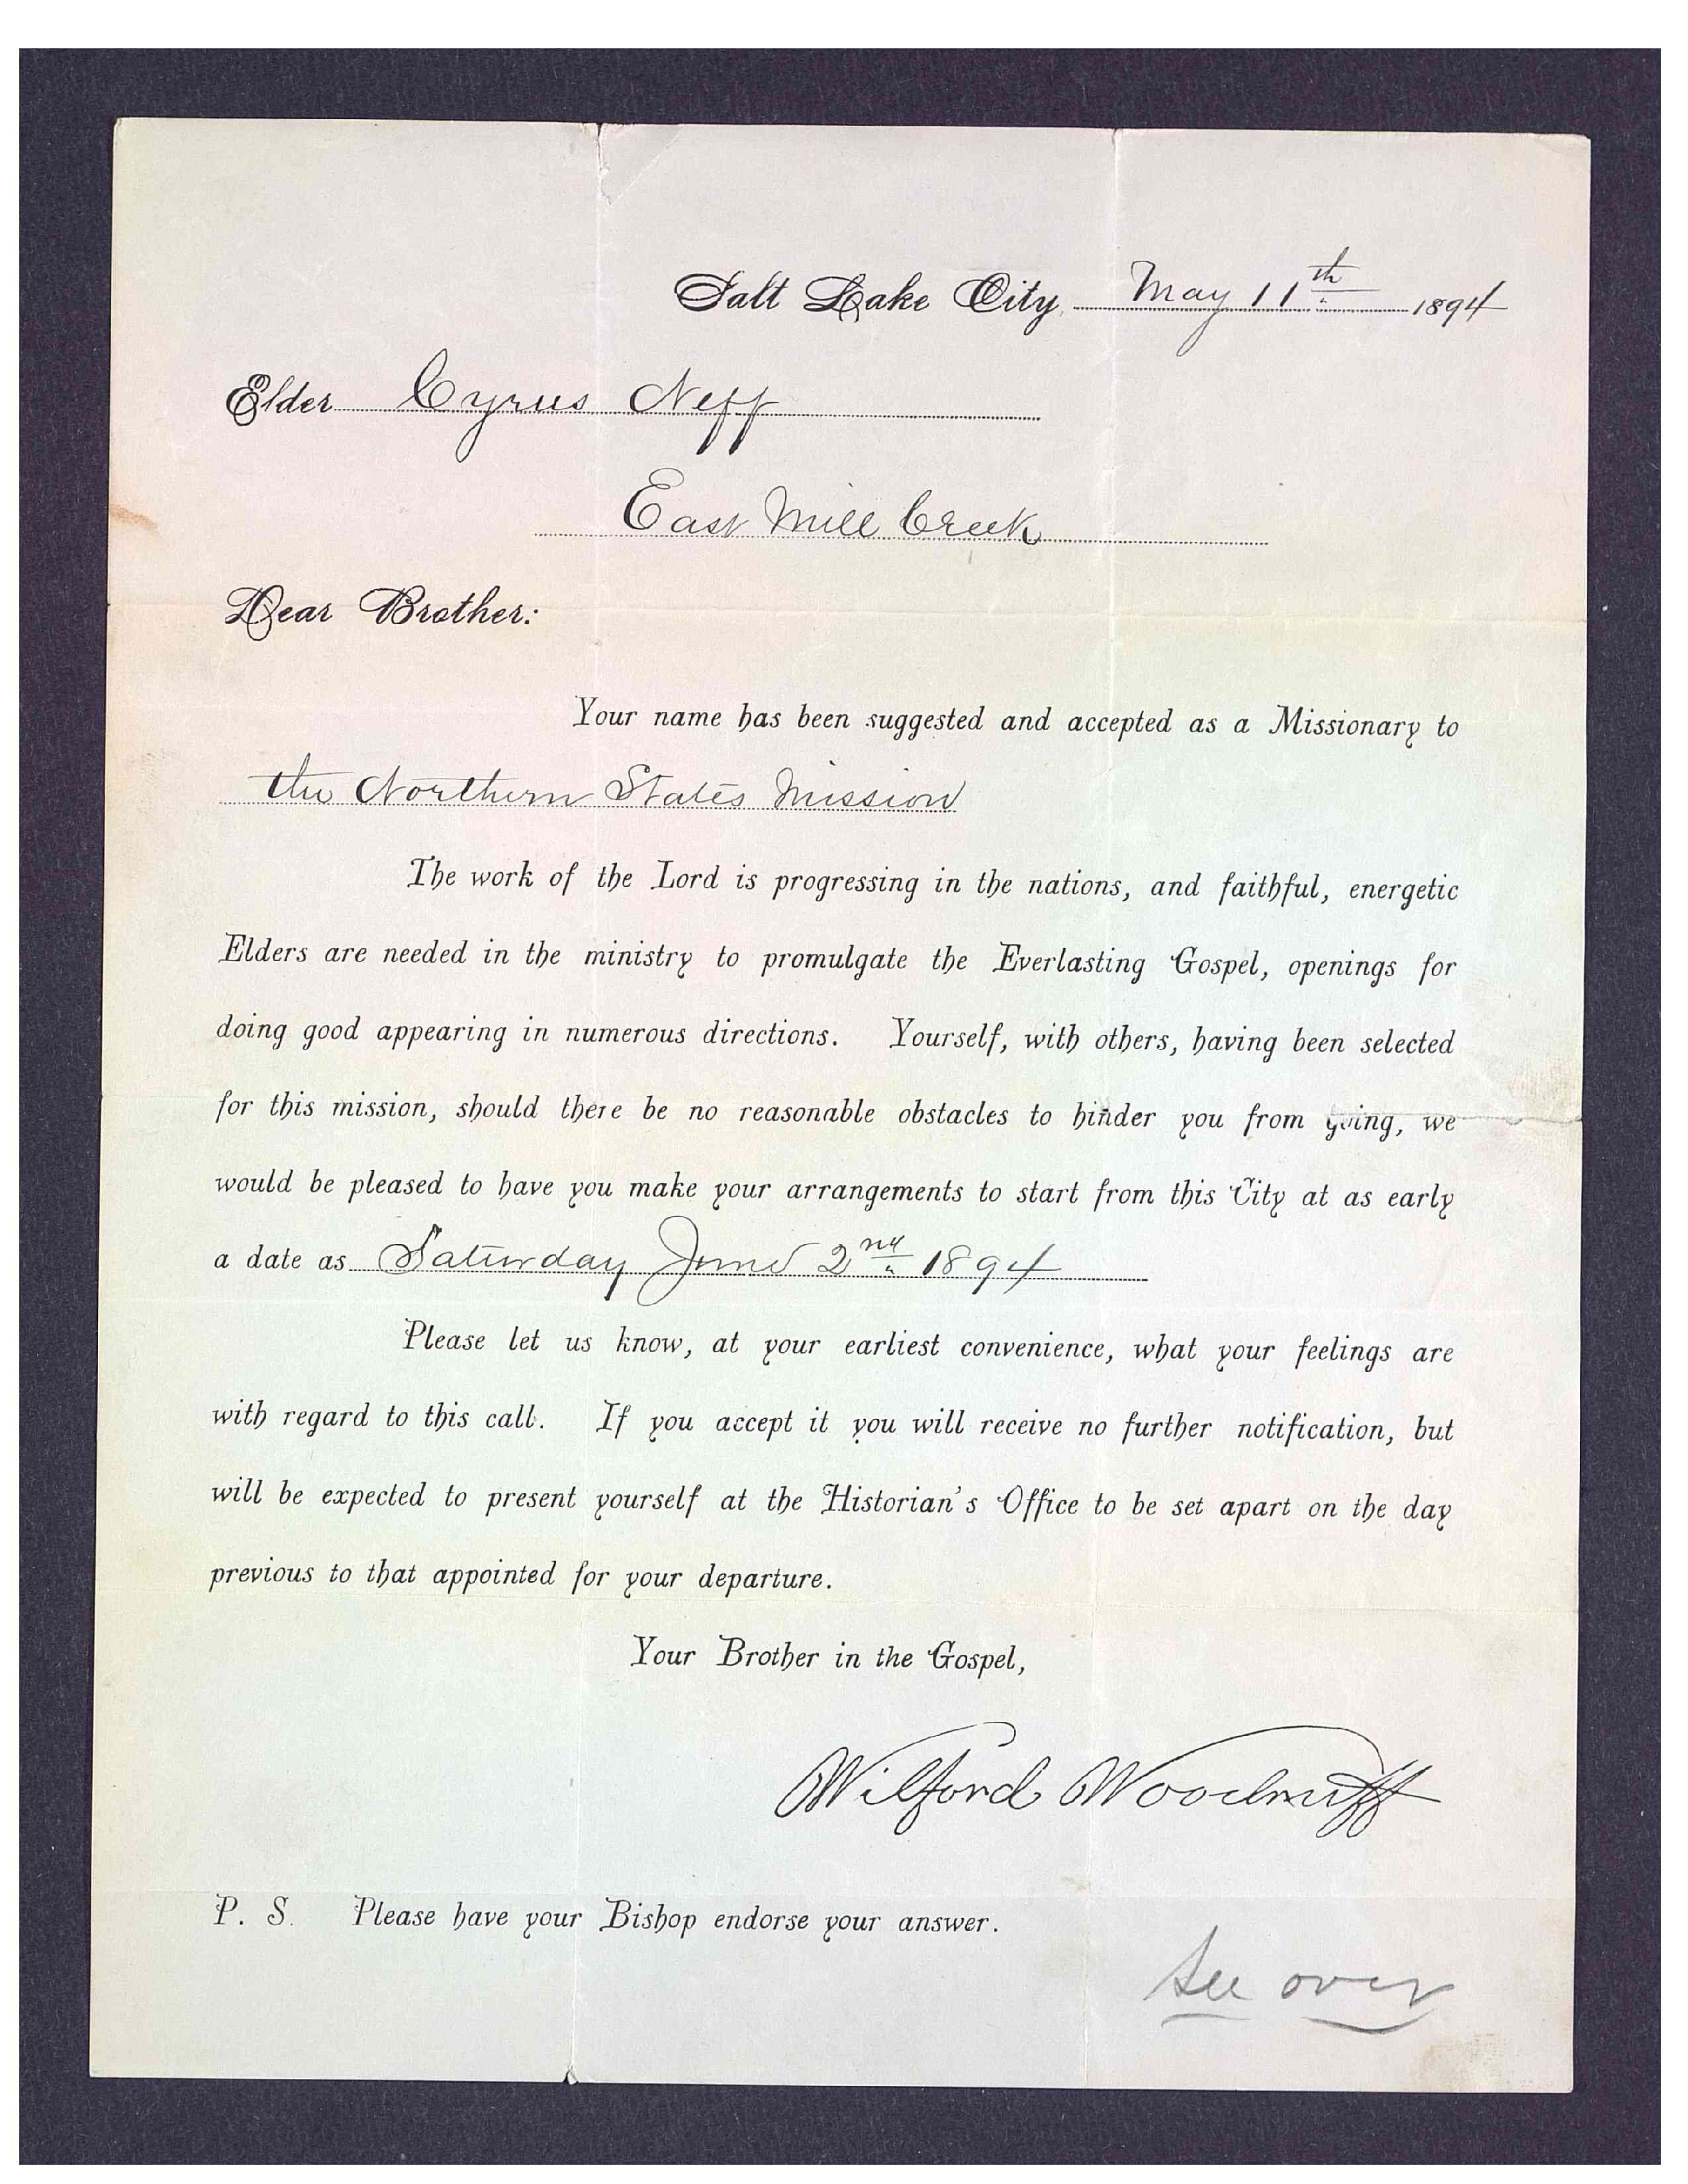 Salt Lake City, May 11th 1894
Elder Cyrus Neff
East Mill Creek
Dear Brother:
Your name has been suggested and accepted as a Missionary to
the Northern States Mission
The work of the Lord is progressing in the nations, and faithful, energetic
Elders are needed in the ministry to promulgate the Everlasting Gospel, openings for
doing good appearing in numerous directions. Yourself, with others, having been selected
for this mission, should there be no reasonable obstacles to hinder you from going, we
would be pleased to have you make your arrangements to start from this City at as early
a date as Saturday June 2nd 1894
Please let us know, at your earliest convenience, what your feelings are
with regard to this call. If you accept it you will receive no further notification, but
will be expected to present yourself at the Historian's Office to be set apart on the day
previous to that appointed for your departure.
Your Brother in the Gospel,
Wilford Woodruff
P. S. Please have your Bishop endorse your answer.
See over